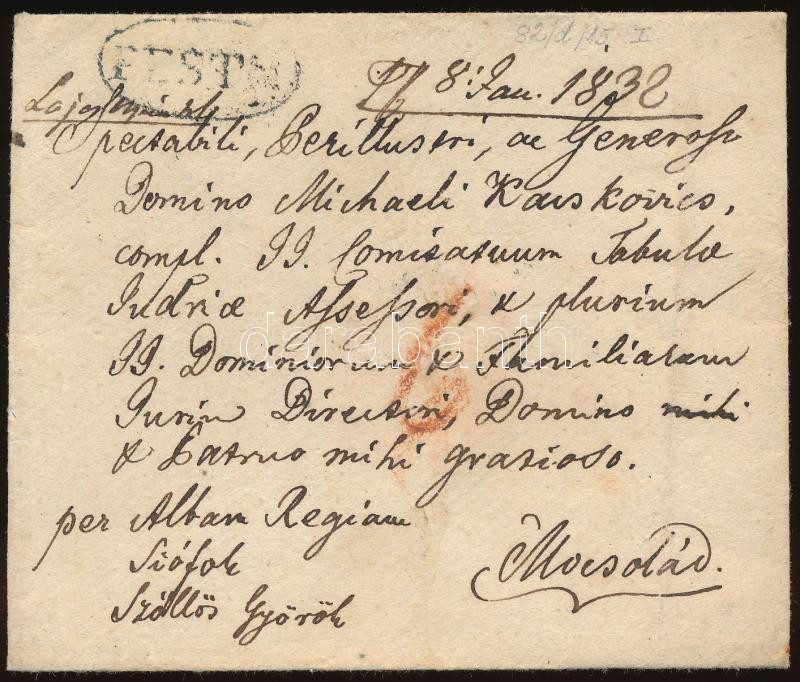 82/d/15 I
PESTH
8: Jan. 1832
Spectabili, Perillustri, ac Generoso
Domino Michaeli Kacskovics,
compl. II. Comitatuum Tabulæ
Judriæ Assessori, & plurium
II. Dominiorum & Familiarum
Jurium Directori, Domino mihi
& Patruo mihi gratioso.
per Albam Regiam
Siófok
Szöllös Györök
Mocsolád.
darabanth